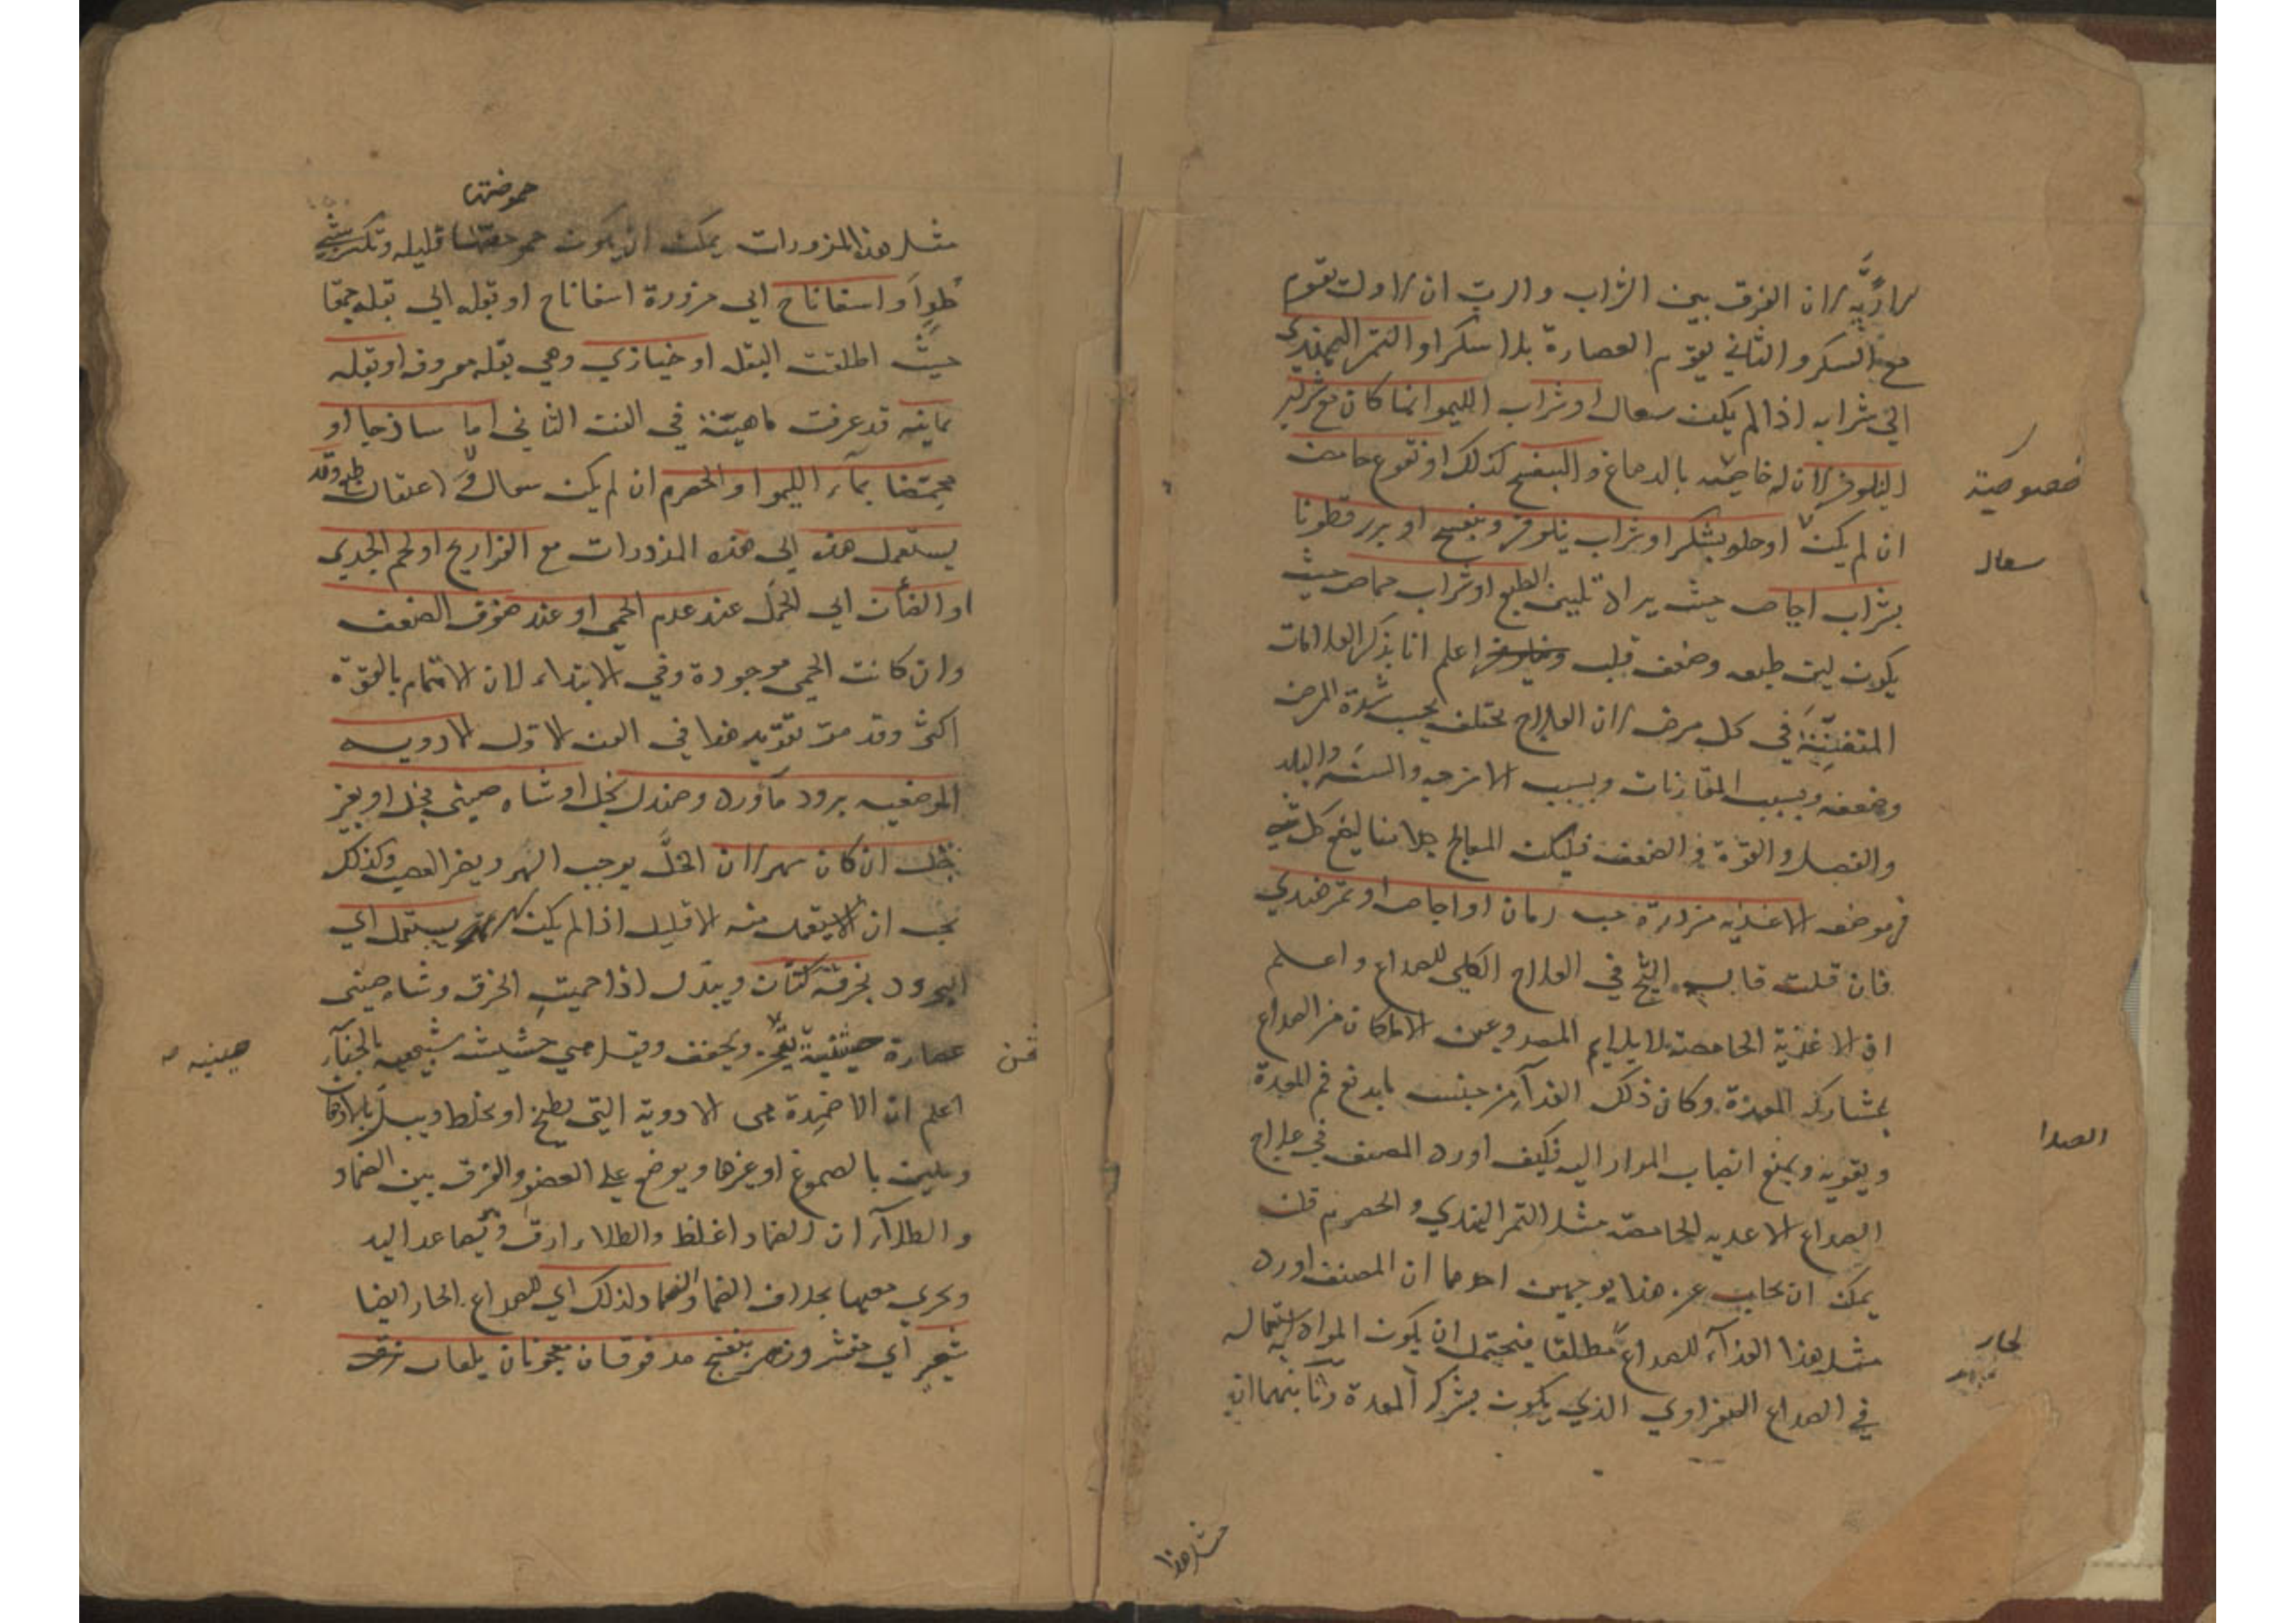 لا رُبِّه لان الفرق بين الشراب والرب ان الاول يقوم
مع السكر والثاني يقوم العصارة بلا سكر او التمر الهندي
اي شرابه اذا لم يكن سعال او شراب الليمو انما كان مع شراب
النيلوفر لان له خاصية بالدماغ والبنفسج كذلك او نقوع حامض
ان لم يكن او حلو بسكر او بشراب نيلوفر وبنفسج او بزر قطونا
بشراب اجاص حيث يراد تليين الطبع او شراب حماض حيث
يكون لين طبع وضعف قلب اعلم انا نذكر العلامات
المتفننة في كل مرض لان العلاج يختلف بحسب شدة المرض
وضعفه وبسبب المقارنات وبسبب الامزجه والسنه والبلد
والفصل والقوة والضعف فليكن المعالج ليضع كل شي
في موضعه الاغذيه مزورة حب رمان او اجاص او تمر هندي
فان قلت قال الشيخ في العلاج الكلي للصداع واعلم
ان الاغذية الحامضة لا يلايم المصدوعين الا ما كان من الصداع
بمشاركة المعدة وكان ذلك الغذآء من جنس ما يدبغ فم المعدة
ويقويه ويمنع انصباب المرار اليه فكيف اورد المصنف في علاج
الصداع الاغديه الحامضة مثل التمر الهندي والحصرم قلت
يمكن ان يجاب عن هذا بوجهين احدهما ان المصنف اورد
مثل هذا الغذآء للصداع مطلقا فيحتمل ان يكون المراد استعماله
في الصداع الصفراوي الذي يكون بشركة المعدة وثانيهما ان
خصوصية
سعال
الصدا
لحار
مثل هذا
حموضتها
مثل هذه المزورات يمكن ان يكون حموضتها قليله وتكسر بشي
حلو او اسفاناخ اي مزورة اسفاناخ او بقله اي بقله حمقا
حيث اطلقت البقل او خبازي وهي بقله معروفه او بقله
يمانيه قد عرفت ماهيته في الفن الثاني اما ساذجا او
محمضا بمآء الليمو او الحصرم ان لم يكن سعال ولا اعتقال طبع وقد
يستعمل هذه اي هذه المزورات مع الفراريج او لحم الجدي
او الضأن اي الحمل عند عدم الحمي او عند خوف الضعف
وان كانت الحمي موجودة وفي الابتداء لان الاهتمام بالقوة
اكثر وقد مر تقرير هذا في الفن الاول الادويه
الموضعيه برود ماورد وصندل بخل او شاه صيني بخل او بغير
خل ان كان سهر لان الخلّ يوجب السهر ويضر العصب وكذلك
يجب ان لا يستعمل منه الا قليل اذا لم يكن سهر يستعمل اي
البرود بخرقة كتّان ويبدل اذا حميت الخرق وشاه صيني
عصارة حشيشة ويجفف وقيل هي حشيشه شبيهه بالحنآء
اعلم ان الاضمدة هي الادوية التي يطبخ او يخلط ويبل بالادهان
ويلين بالصموغ او غيرها ويوضع علي العضو والفرق بين الضماد
والطلآء ان الضماد اغلظ والطلاء ارق
ويجري معها بخلاف الضماد الضماد ولذلك اي للصداع الحار ايضا
شعير اي مقشر وزهر بنفسج مدقوقان معجونان بلعاب
صينيه